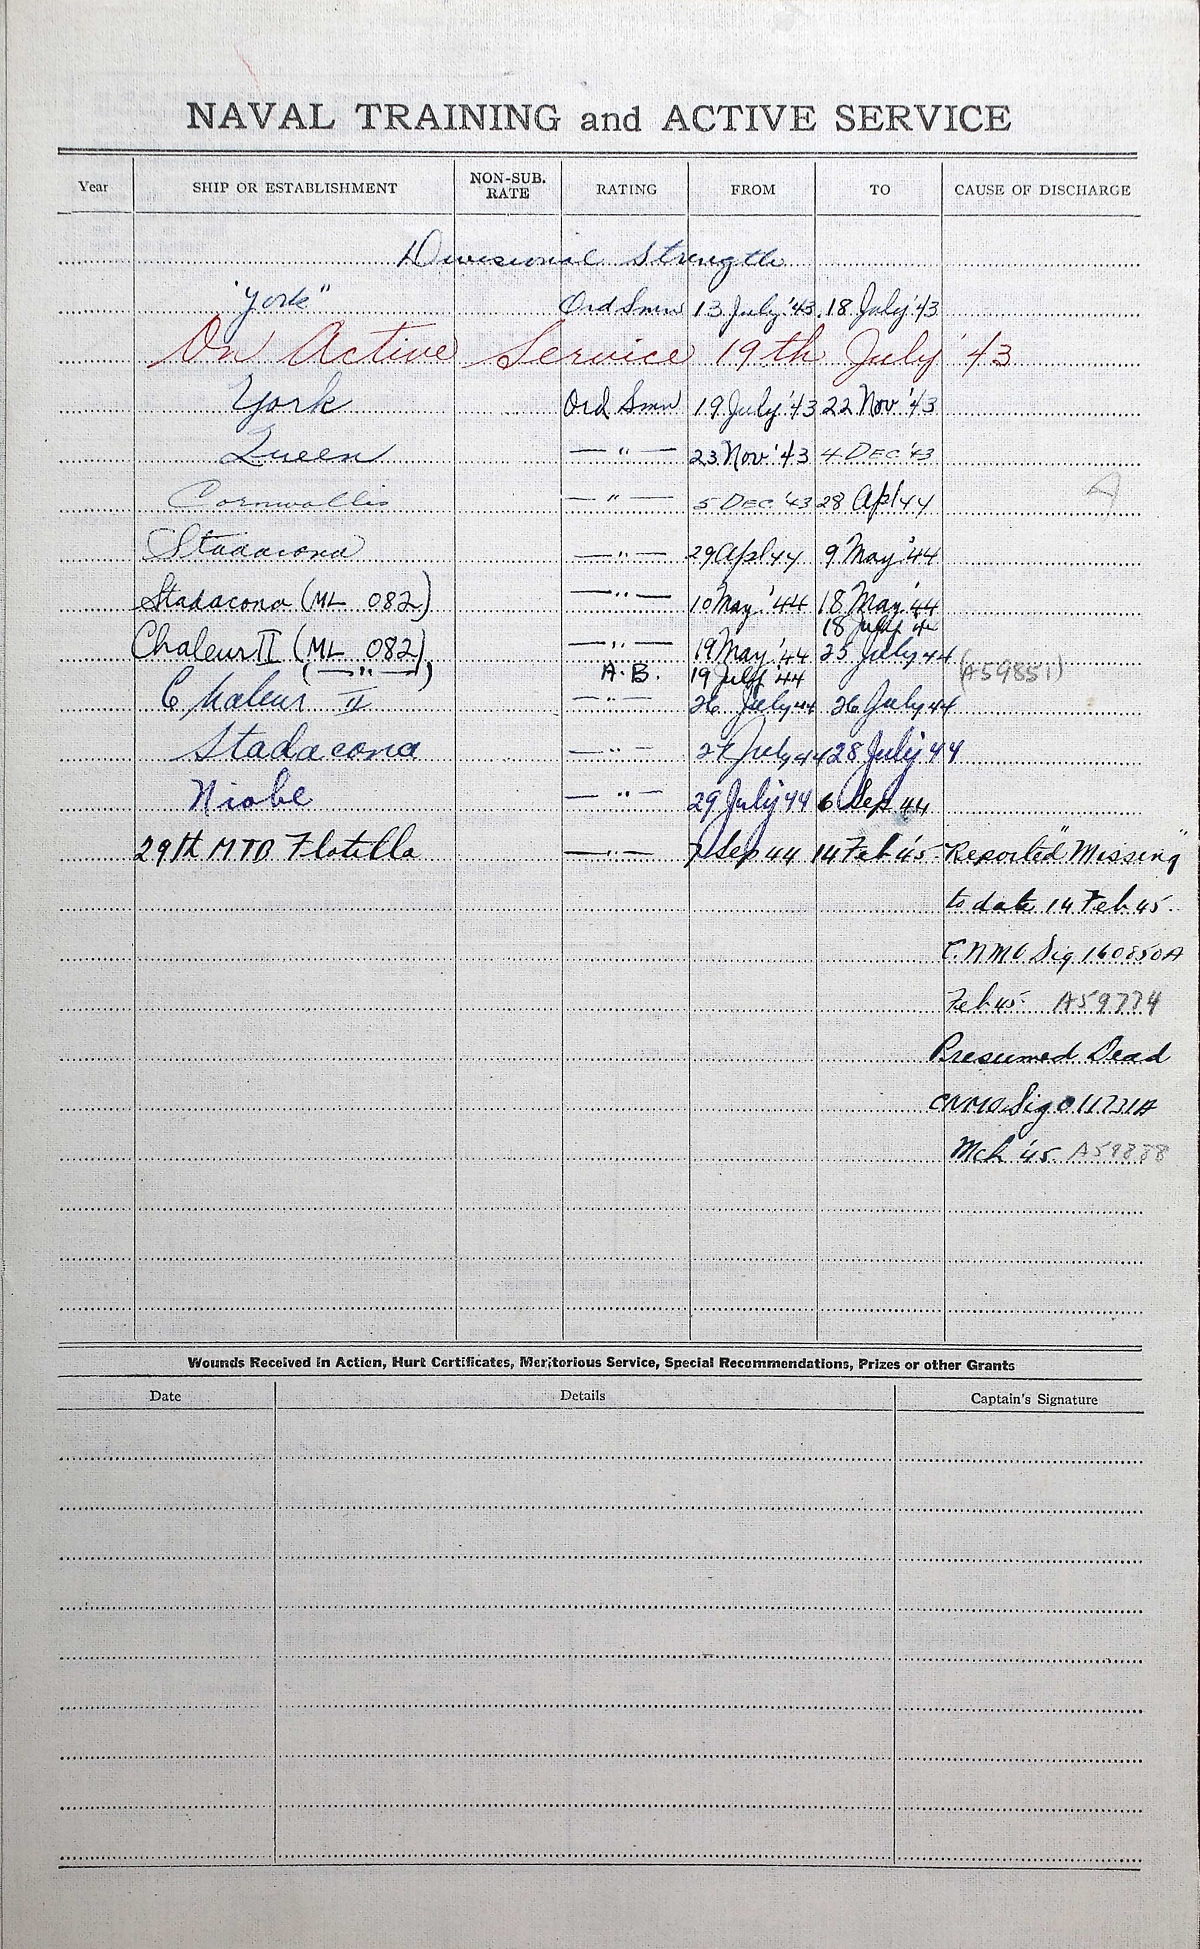 NAVAL TRAINING and ACTIVE SERVICE
Year SHIP OR ESTABLISHMENT NON-SUB. RATE RATING FROM TO CAUSE OF DISCHARGE
Divisional Strength
"York" Ord Smn 13 July '43 18 July '43
On Active Service 19th July '43
York Ord Smn 19 July '43 22 Nov '43
Queen — " — 23 Nov '43 4 DEC '43
Cornwallis — " — 5 DEC '43 28 Apl 44 A
Stadacona — " — 29 Apl 44 9 May '44
Stadacona (ML 082) — " — 10 May '44 18 May '44
18 July 44
Chaleur II (ML 082) — " — 19 May '44 25 July 44
(— " —) A.B. 19 July '44 (A59851)
Chaleur II — " — 26 July 44 26 July 44
Stadacona — " — 27 July 44 28 July 44
Niobe — " — 29 July 44 6 Sep 44
29th MTB Flotilla — " — 7 Sep 44 14 Feb '45 Reported "Missing"
to date 14 Feb 45.
C.N.M.O Sig 160850A
Feb 45. A59774
Presumed Dead
CNMO Sig 011731A
Mch '45 A59888
Wounds Received In Action, Hurt Certificates, Meritorious Service, Special Recommendations, Prizes or other Grants
Date Details Captain's Signature